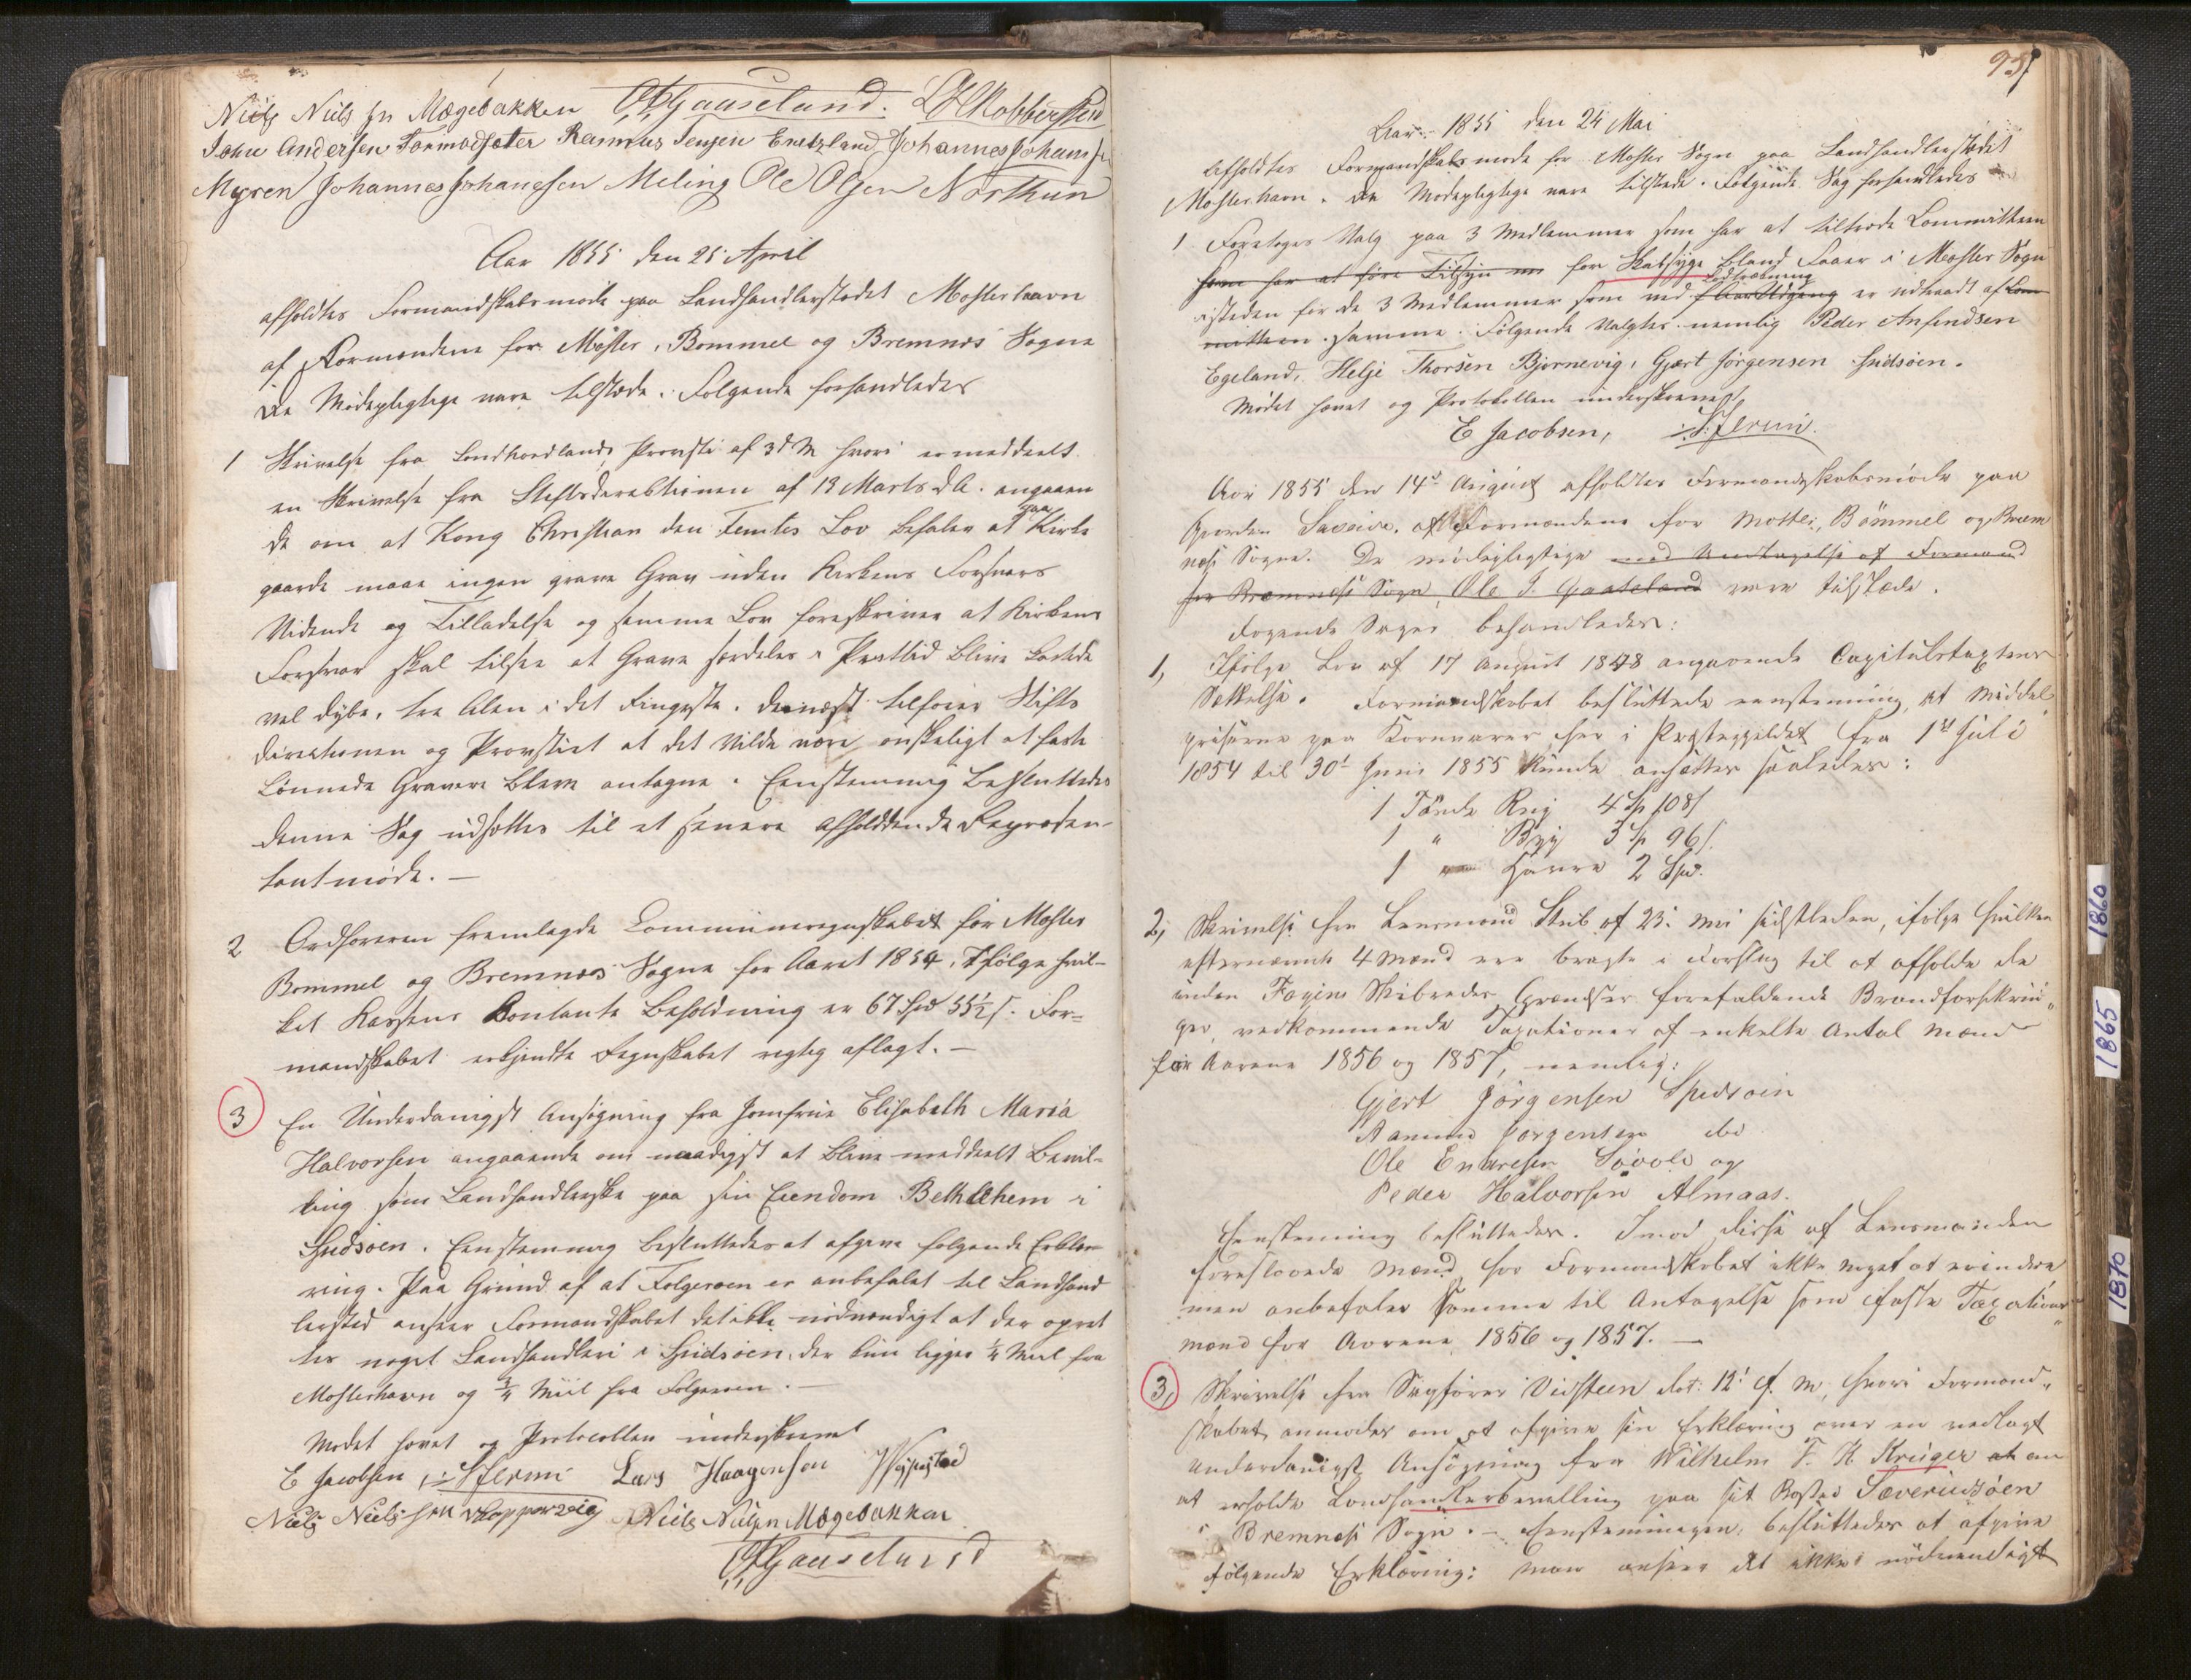 Niels Niels sn Mægebakken O Gaaseland. L H Robbersten
John Andersen Tormodsæter Rasmus Jensen Enetzland Johannes Johanss
Myren Johannes Johanesen Meling Ole Olsen Nordhun
Aar 1855 den 25 April
afholdtes Formandskabsmøde paa Landhandlerstædet Mosterhavn
af Formændene for Moster, Bømmel og Bremnæs Sogne
De Mødepligtige vare tilstæde. Følgende forhandledes
1 Skrivelse fra Søndhordlands Provsti af 3d M hvori er meddeelt
en Skrivelse fra Stiftsdirektionen af 19 Marts d.A. angaaen
de om at Kong Christian den Femtes Lov befaler at paa Kirke
gaarde maae ingen grave Grav uden Kirkens Forsvars
Vidende og Tilladelse og samme Lov foreskriver at Kirkens
Forsvar skal tilsee at Grave særdeles i Pesttid blive kastede
vel dybe, tre Alen i det Ringeste. dernæst tilføier Stifts
directionen og Provstiet at det vilde være ønskeligt at faste
lønnede Gravere bleve antagne. Eenstemmig besluttedes
denne Sag udsættes til et senere afholddende Repræsen-
tantmøde. —
2 Ordføreren fremlagde Communeregnskabet for Moster
Bømmel og Bremnæs Sogne for Aaret 1854. Ifølge hvil-
ket Kassens Contante Beholdning er 67 Spd 55½ s. For=
mandskabet erkjendte Regnskabet rigtig aflagt. —
3 En Underdanigst Ansøgning fra Jomfrue Elisabeth Maria
Halvorsen angaaende om naadigst at blive meddeelt Bevil-
ling som Landhandlerske paa sin Eiendom Bethlehem i
Spidsøen. Eenstemmig besluttedes at afgive følgende Erklæ-
ring. Paa Grund af at Folgerøen er anbefalet til Landhand
lersted anseer Formandskabet det ikke nødvendigt at der opret
tes noget Landhandleri i Spidsøen, der kun ligger ¼ Miil fra
Mosterhavn og ¾ Miil fra Folgerøen. —
Mødet hævet og Protocollen underskrevet
E Jacobsen, S Ferini Lars Haagensen
Niels Nielssen Kopperveig Niels Nielsen Mægebakken
O Gaaseland
95
Aar 1855 den 24 Mai
Afholdtes Formandskabsmøde for Moster Sogn paa Landhandlerstædet
Mosterhavn. De Mødepligtige vare tilstede. Følgende Sag forhandledes
1 Foretoges Valg paa 3 Medlemmer som har at tiltræde Committeen
som har at føre Tilsyn m for Skabsyge bland Faaer i Moster Sogn
istæden for de 3 Medlemmer som ved Lodtrækning er udtraadt af Com
mitteen samme. Følgende Valgtes nemlig Peder Anfindsen
Egeland, Helje Thorsen Bjørnevig, Gjært Jørgensen Spidsøen.
Mødet hævet og Protokollen underskrevet
E Jacobsen, S Ferini.
Aar 1855 den 14de August afholdtes Formandskabsmøde paa
Gaarden af Formændene for Moster, Bømmel og Brem
næs Sogne. De mødepligtige med Undtagelse af Formand
for Bremnæs Sogn, Ole J. Gaaseland vare tilstæde.
Følgende Sager behandledes:
1, Ifølge Lov af 17 August 1848 angaaende Capitulstaxtens
Sættelse. Formandskabet besluttede eenstemmig, at Middel
priserne paa Kornvarer her i Præstegjeldet fra 1st Juli
1854 til 30te Juni 1855 kunde ansættes saaledes:
1 Tønde Rug 4 Sp 108 s
1 " Byg 3 Sp 96 s.
1 " Havre 2 Spd.
2, Skrivelse fra Lensmand Stub af 23de Mai sidstleden, ifølge hvilken
efternævnte 4 Mænd ere bragte i Forslag til at afholde de
inden Føyens Skibredes Grændser forefaldende Brandforsikrin
ger vedkommende Taxationer af enkelte Antal Mænd
for Aarene 1856 og 1857, nemlig:
Gjert Jørgensen Spidsøin
Aamund Jørgensen do
Ole Enaresen Søvold og
Peder Halvorsen Almaas.
Eenstemmig besluttedes. Imod disse af Lensmanden
foreslaaede Mænd har Formandskabet ikke noget at erindre
men anbefaler samme til Antagelse som faste Taxations
mænd for Aarene 1856 og 1857. —
3, Skrivelse fra Sagfører Vidsteen dat: 12te d. M., hvori Formand
skabet anmodes om at afgive sin Erklæring over en vedlagt
underdanigst Ansøgning fra Wilhelm F. K. Krüger at om
at erholde Landhandlerbevilling paa sit Bosted Sæverudsøen
i Bremnæs Sogn. — Eenstemmigen besluttedes at afgive
følgende Erklæring: man anseer det ikke nødvendigt
1860
1865
1870